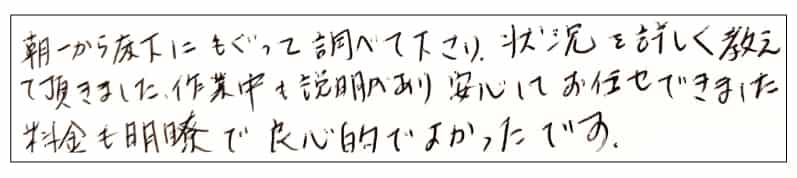 朝一から床下にもぐって調べて下さり、状況を詳しく教え
て頂きました、作業中も説明があり安心してお任せできました
料金も明瞭で良心的でよかったです。